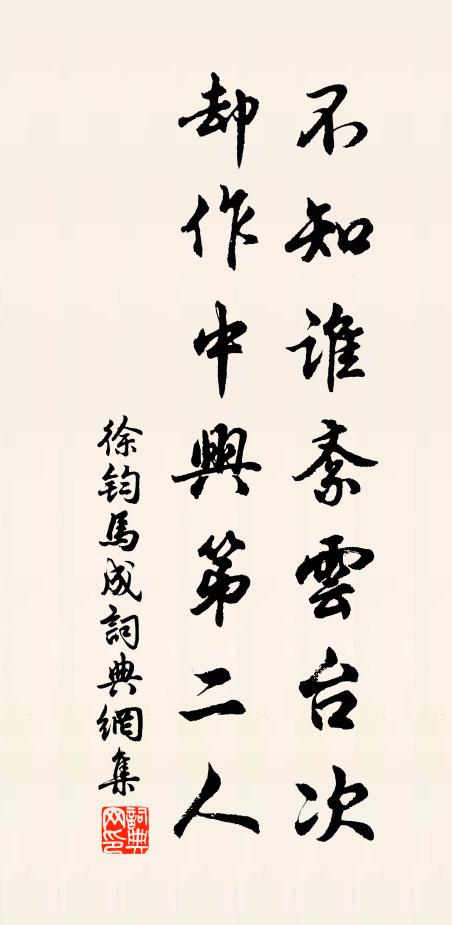 不知誰紊雲台次
却作中興第二人
徐鈞馬成詞典網集
詞典网印